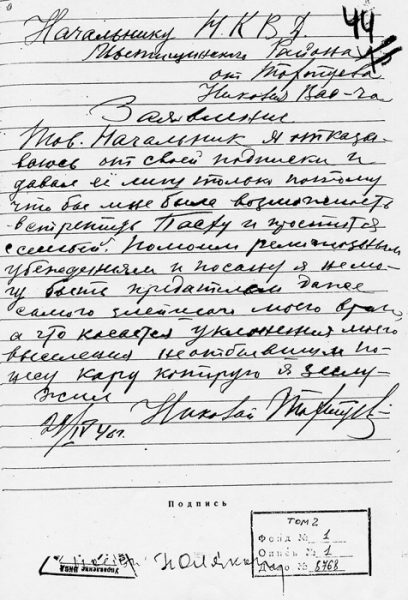 44
Начальнику Н.К.В.Д
Мытищинского Района
от
Николая Вас-ча
Заявление
Тов. Начальник я отказы
ваюсь от своей подписки и
давал её лишь только потому
что бы мне была возможность
встретить Пасху и проститься
с семьей.
убеждениям и я не мо
гу быть предателем даже
самого злейшего моего врага
а что касается уклонения моего
выселения по
несу кару которую я заслу
жил
Николай
Подпись
ТОМ 2
Фонд № 1
Опись № 1
Дело № 8768